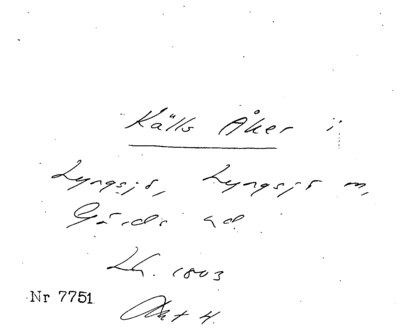 Källs Åker i
Lyngsjö, Lyngsjö m,
Gärds hd.
Lh. 1803
Akt 4.
Nr 7751